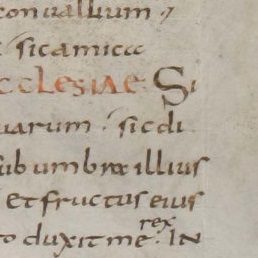 conuallium ;
sicamica
cclesiae Si
uarum · sicdi
sub umbra illius
et fructus eius
rex
to duxit me · IN